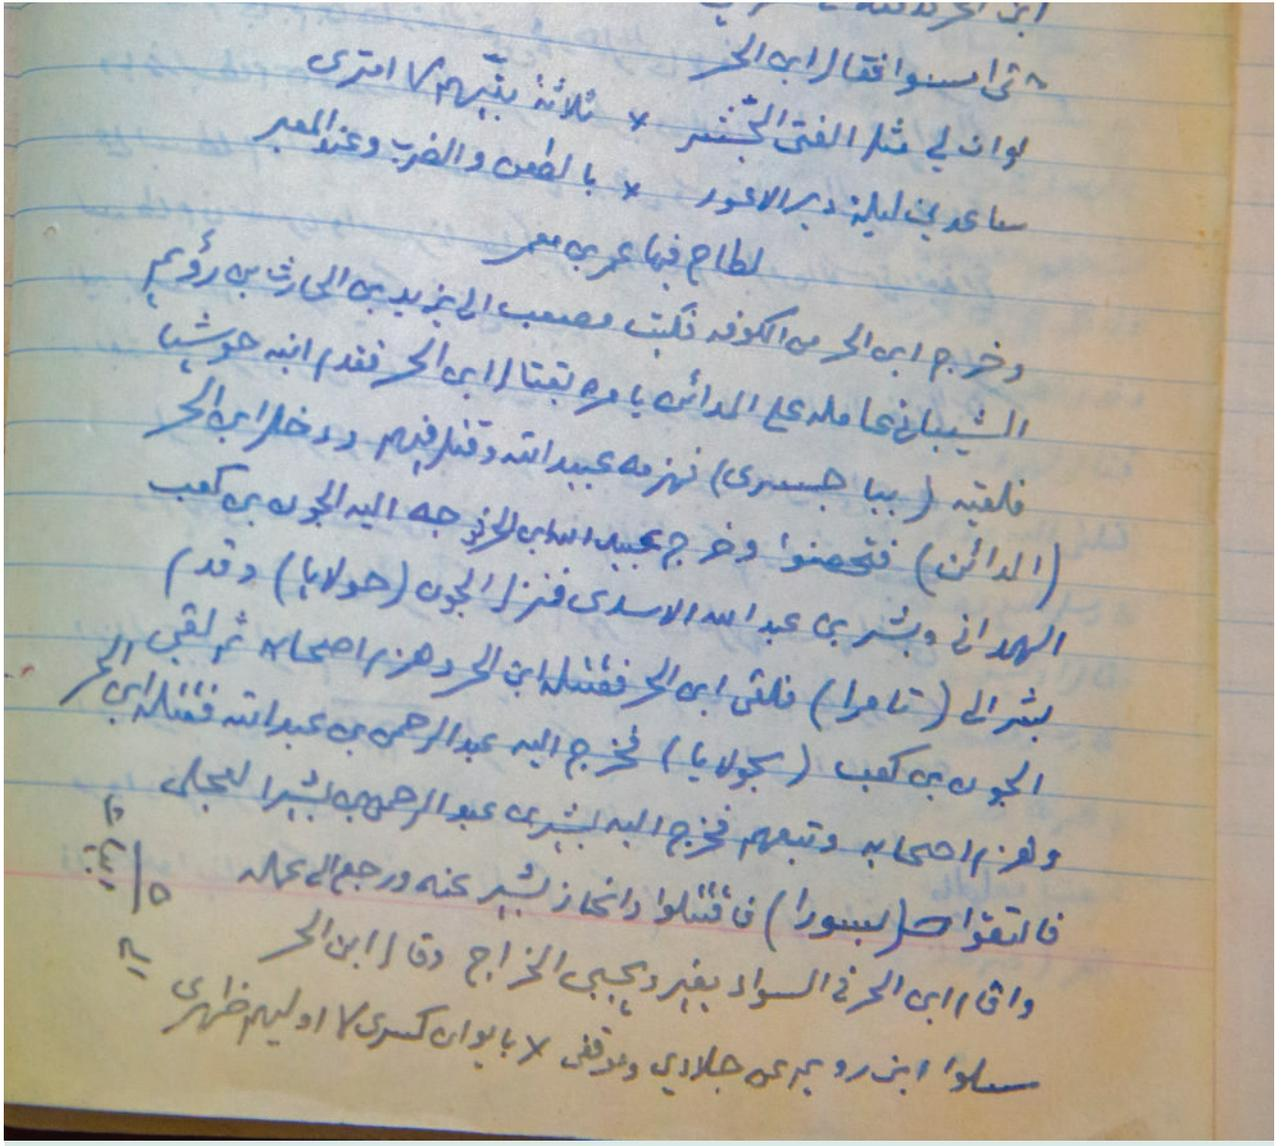 حتى امسوا فقال ابن الحر
لو ان لي مثل الفتى المجشر × ثلاثة بيتهم لا امترى
ساعدني ليلة دير الاعور × بالطعن والضرب وعند المعبر
لطاح فيها عمر بن معمر
وخرج ابن الحر من الكوفه فكتب مصعب الى يزيد بن الحارث بن رؤيم
الشيباني عامله على المدائن يامره بقتال ابن الحر فقدم ابنه حوشبا
فلقيه (ببا جسرى) فهزمه عبيد الله وقتل فيهم ودخل ابن الحر
(المدائن) فتحصنوا وخرج عبيد الله ابن الحر فوجه اليه الجون بن كعب
الهمدانى وبشر بن عبد الله الاسدى فنزل الجون (حولايا) وقدم
بشر الى (تامرا) فلقى ابن الحر فقتله ابن الحر وهزم اصحابه ثم لقي
الجون بن كعب (بحولايا) فخرج اليه عبد الرحمن بن عبد الله فقتله ابن الحر
وهزم اصحابه وتبعهم فخرج اليه بشير بن عبد الرحمن بن بشير العجلى
فالتقوا (بسورا) فاقتتلوا وانحاز بشير عنه ورجع الى عمله
واقام ابن الحر في السواد يغير ويجبي الخراج وقال ابن الحر
سلوا ابن رويم عن جلادي وموقفى × بايوان كسرى لا اوليهم ظهرى